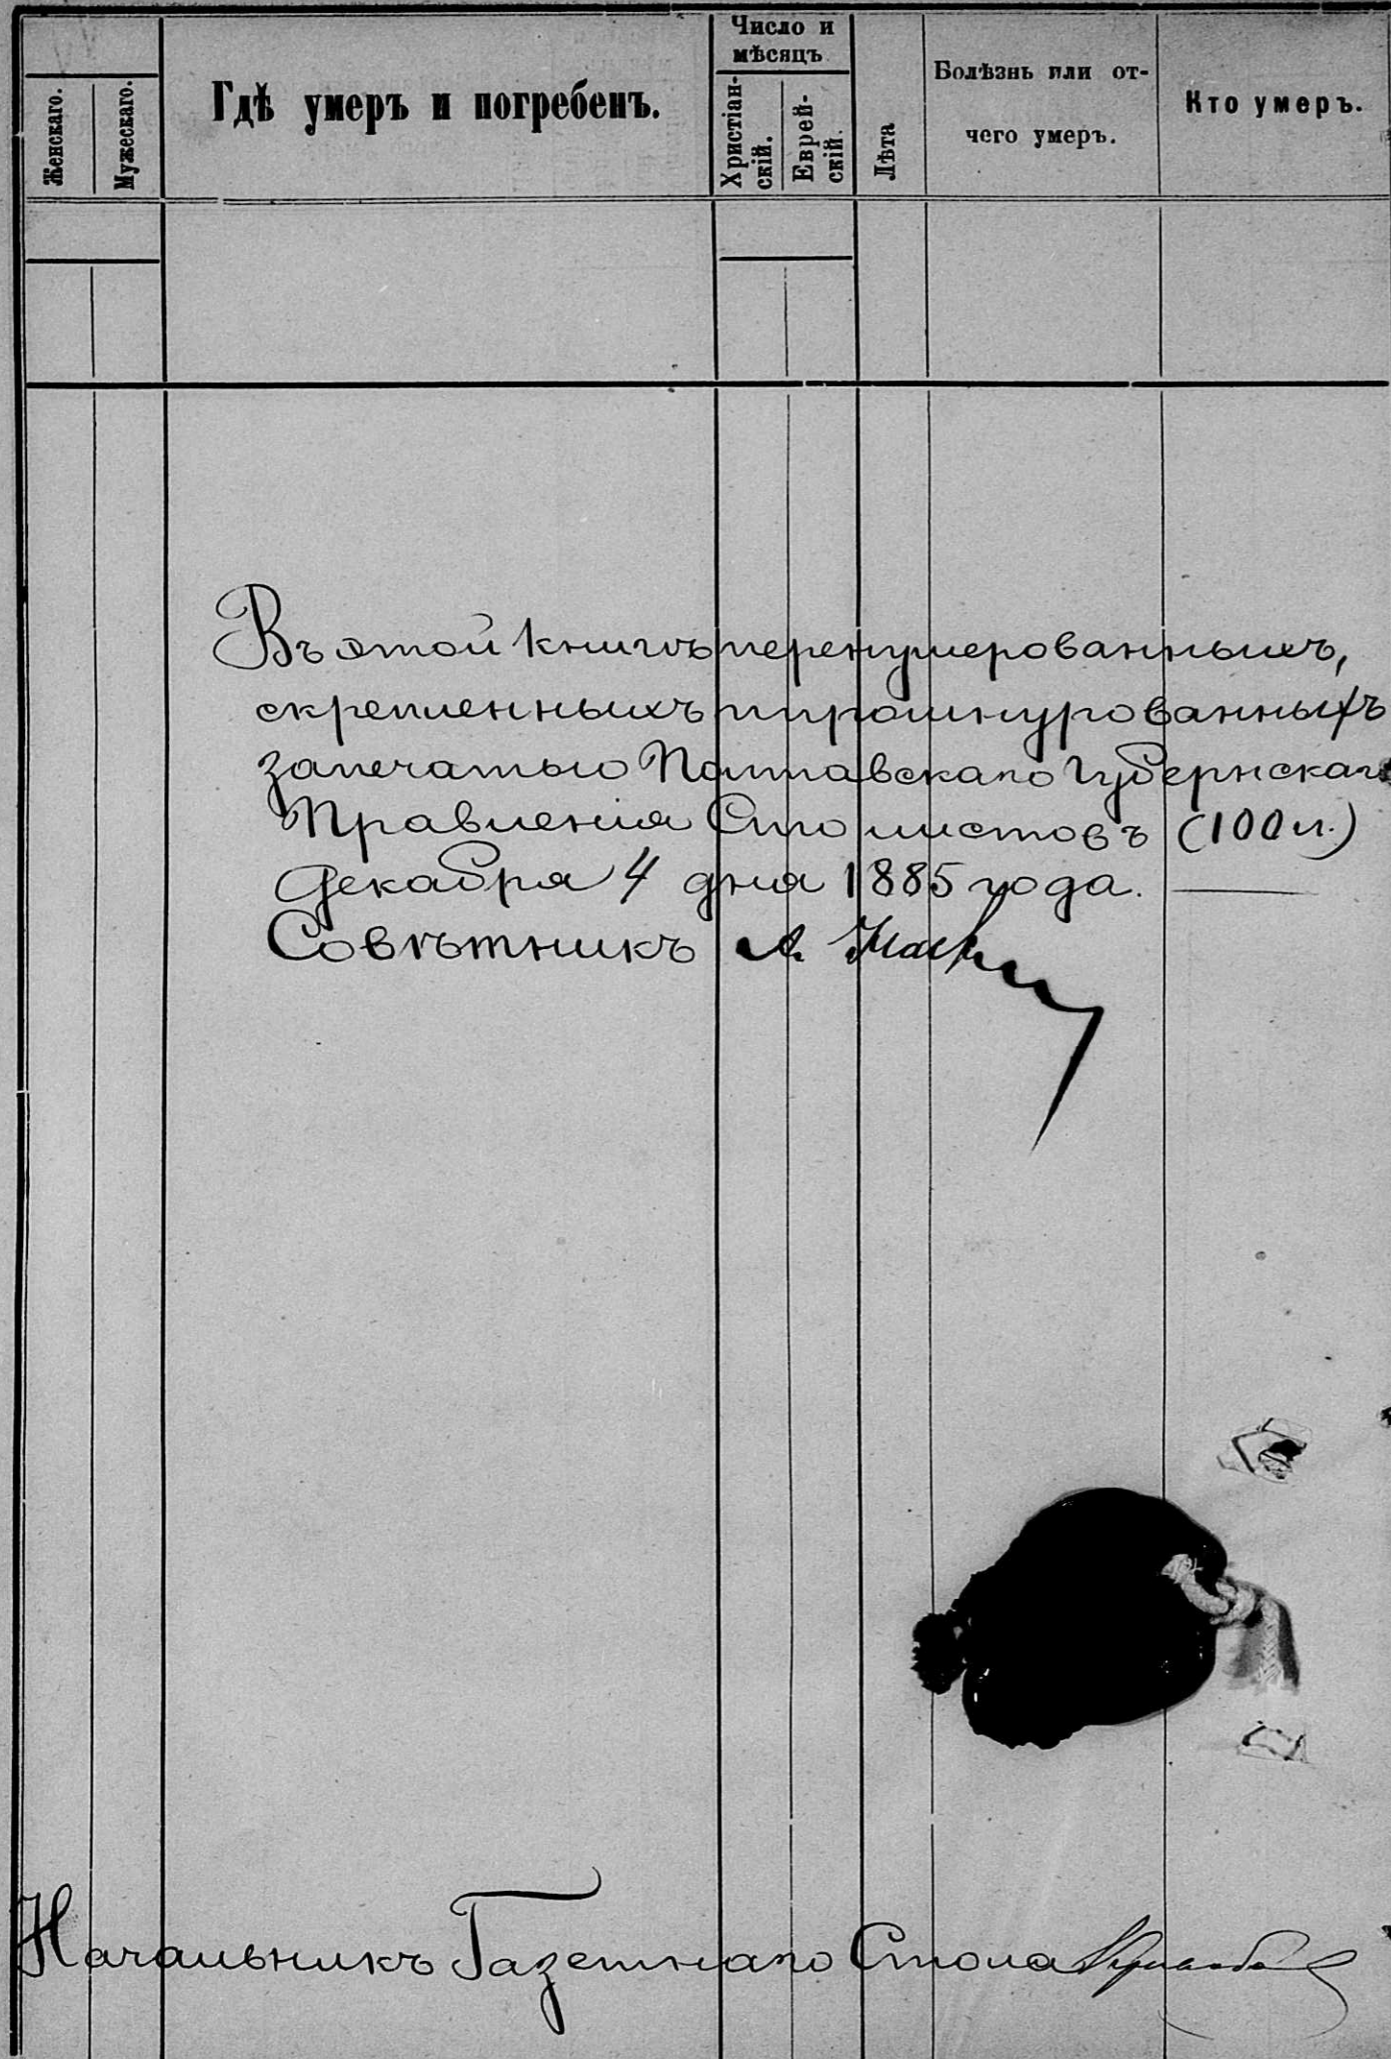 Женскаго.
Мужескаго.
Гдѣ умеръ и погребенъ.
Число и
мѣсяцъ
Христіан-
скій.
Еврей-
скій.
Лѣта
Болѣзнь или от-
чего умеръ.
Кто умеръ.
Въ этой книгѣ перенумерованныхъ,
скрепленныхъ и прошнурованныхъ
за печатью Полтавскаго Губернскаго
Правленія Сто листовъ (100 л.)
Декабря 4 дня 1885 года.
Совѣтникъ А.
Начальникъ Газетнаго Стола